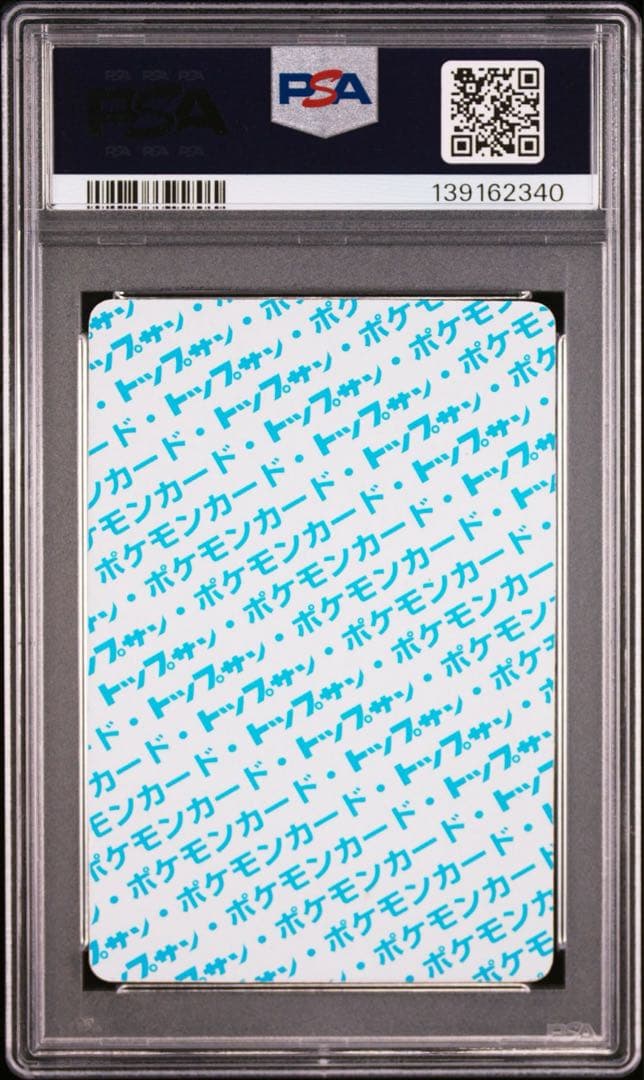 PSA PSA PSA
PSA
PSA
PSA PSA PSA
139162340
サン
トップサン・ポケ
・トップサン・ポケモン
ード・トップサン・ポケモン
ンカード・トップサン・ポケ
ケモンカード・トップサン・
ポケモンカード・トップサン
・ポケモンカード・トッ
サン・ポケモンカード・
トップサン・ポケモンカード
・トップサン・ポケモンカー
ド・トップサン・ポケモン
カード・トップサン・ポケ
モンカード・トップサン・
ポケモンカード・トップサン
・ポケモンカード・トッ
プサン・ポケモンカード・
トップサン・ポケモンカード
サン・ポケモン
ポケ
PSA